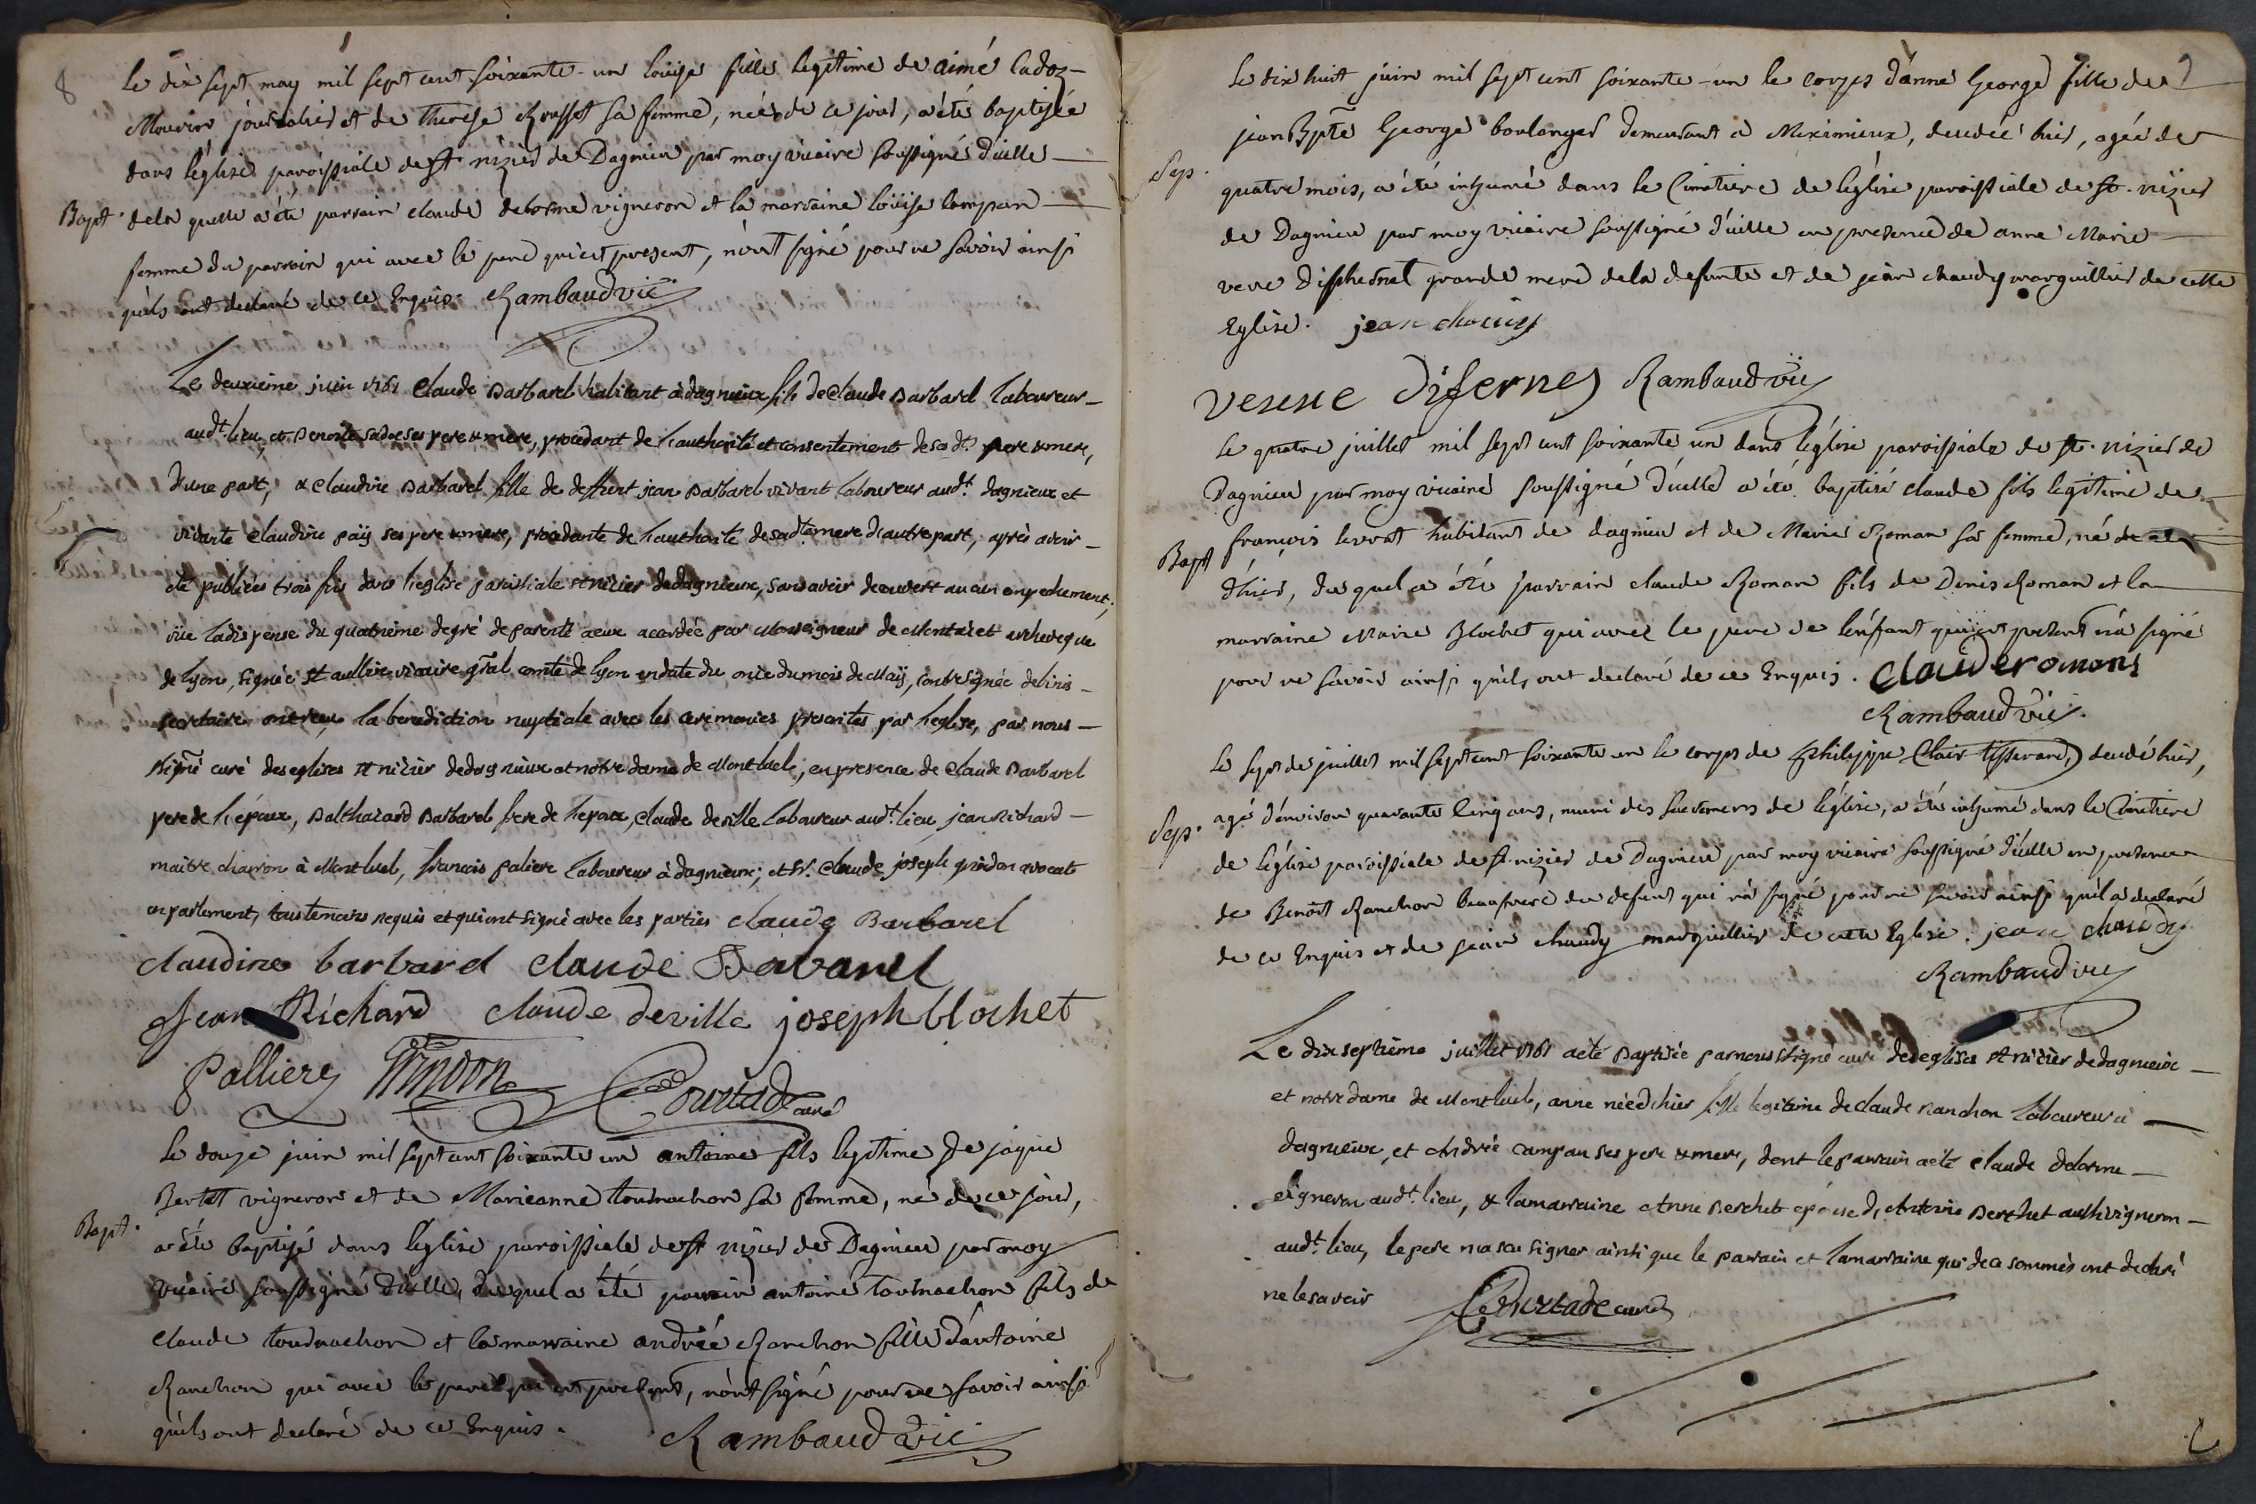 8
le dix sept may mil sept cent soixante-un loüise fille legitime de aimé Cadoz-
Mouvier journalier et de therese Rousset sa femme, née de ce jour, a été baptisée
dans l'église paroissiale de st nizier de Dagnieu par moy vicaire soussigné d'icelle
Bapt. de la quelle a été parrain claude delorme vigneron et la marraine loüise campan
femme du parrain qui avec le pere qui est present, n'ont signé pour ne savoir ainsi
qu'ils ont declaré de ce Enquis. Rambaud vic
Le deuxieme juin 1761 Claude Barbarel habitant à dagnieux fils de Claude Barbarel Laboureur
aud.t lieu, et Benoite sadoe ses pere & mere, procedant de l'authorité et consentement de sesd.ts pere & mere,
d'une part, & Claudine Barbarel fille de deffunt jean Barbarel vivant laboureur aud.t dagnieux et
vivante Claudine paÿ ses pere & mere, procedante de l'authorité de sad.te mere d'autre part, après avoir
été publiées trois fois dans l'eglise paroissiale st nizier de dagnieux, sans avoir decouvert aucun empechement,
vüe la dispense du quatrieme degré de parenté à eux accordée par Monseigneur de Montazet archeveque
de lyon, signée st aullire vicaire g̃ral comte de lyon en date du onze du mois de Maÿ, contresignée de
secretaire ont reçu la benediction nuptiale avec les ceremonies prescrites par l'eglise, par nous
ssigné curé des eglises st nizier de dagnieux et notre dame de Montluel, en presence de Claude Barbarel
pere de l'epoux, Balthazard Barbarel frere de l'epoux, Claude deville Laboureur aud.t lieu, jean Richard
maitre charron à Montluel, francois paliere Laboureur à dagnieux, et Sr. Claude joseph grindon avocat
en parlement, tous temoins requis et qui ont signé avec les parties claude Barbarel
claudine barbarel claude Babarel
Jean Richard claude deville joseph blochet
Palliere Grindon Courtade curé
le douze juin mil sept cent soixante un antoine fils legitime de jaque
Bertet vigneron et de Marieanne tournachon sa femme, né de ce jour,
Bapt. a été baptisé dans l'église paroissiale de st nizier de Dagnieu par moy
vicaire soussigné d'icelle, duquel a été parrain antoine tournachon fils de
claude tournachon et la marraine andrée Ranchon fille d'antoine
Ranchon qui avec le pere qui est present, n'ont signé pour ne savoir ainsi
qu'ils ont declaré de ce Enquis. Rambaud vic
9
le dix huit juin mil sept cent soixante-un le corps d'anne George fille de
jean Bpte George boulanger demeurant a Meximieux, decedée hier, agée de
Sep. quatre mois, a été inhumé dans le Cimetiere de l'église paroissiale de st. nizier
de Dagnieu par moy vicaire soussigné d'icelle en presence de anne Marie
veuve grande mere de la defunte et de jean chaudy marguillier de cette
Eglise. jean chaudy
veuve Rambaud vic
le quatre juillet mil sept cent soixante un dans l'église paroissiale de st. nizier de
Dagnieu par moy vicaire soussigné d'icelle a été baptisé claude fils legitime de
Bapt françois levrat habitant de dagnieu et de Marie Roman sa femme, né
d'hier, du quel a été parrain claude Roman fils de Denis Roman et la
marraine Marie Blochet qui avec le pere de l'enfant qui est present n'a signé
pour ne savoir ainsi qu'ils ont declaré de ce Enquis. Clauderomans
Rambaud vic.
le sept de juillet mil sept cent soixante un le corps de philippe Clair tisserand, decedé hier,
Sep. agé d'environ quarante cinq ans, muni des sacremens de l'église, a été inhumé dans le Cimetiere
de l'église paroissiale de st. nizier de Dagnieu par moy vicaire soussigné d'icelle en presence
de Benoît Ranchon beaufrere du defunt qui n'a signé pour ne savoir ainsi qu'il a declaré
de ce Enquis et de jean chaudy marguillier de cette Eglise. jean chaudy
Rambaud vic
Le dix septieme juillet 1761 a eté Baptisée par nous ssigné curé des eglises st nizier de dagnieux
et notre dame de Montluel, anne née d'hier fille legitime de claude Ranchon laboureur à
dagnieux, et Andrée campan ses pere & mere, dont le parrain a eté claude delorme
vigneron aud.t lieu, & la marraine Anne Berchet epouse d'Antoine Berchet aussi vigneron
aud.t lieu, le pere n'a scu signer ainsi que le parrain et la marraine qui de ce sommés ont declaré
ne le savoir Courtade curé